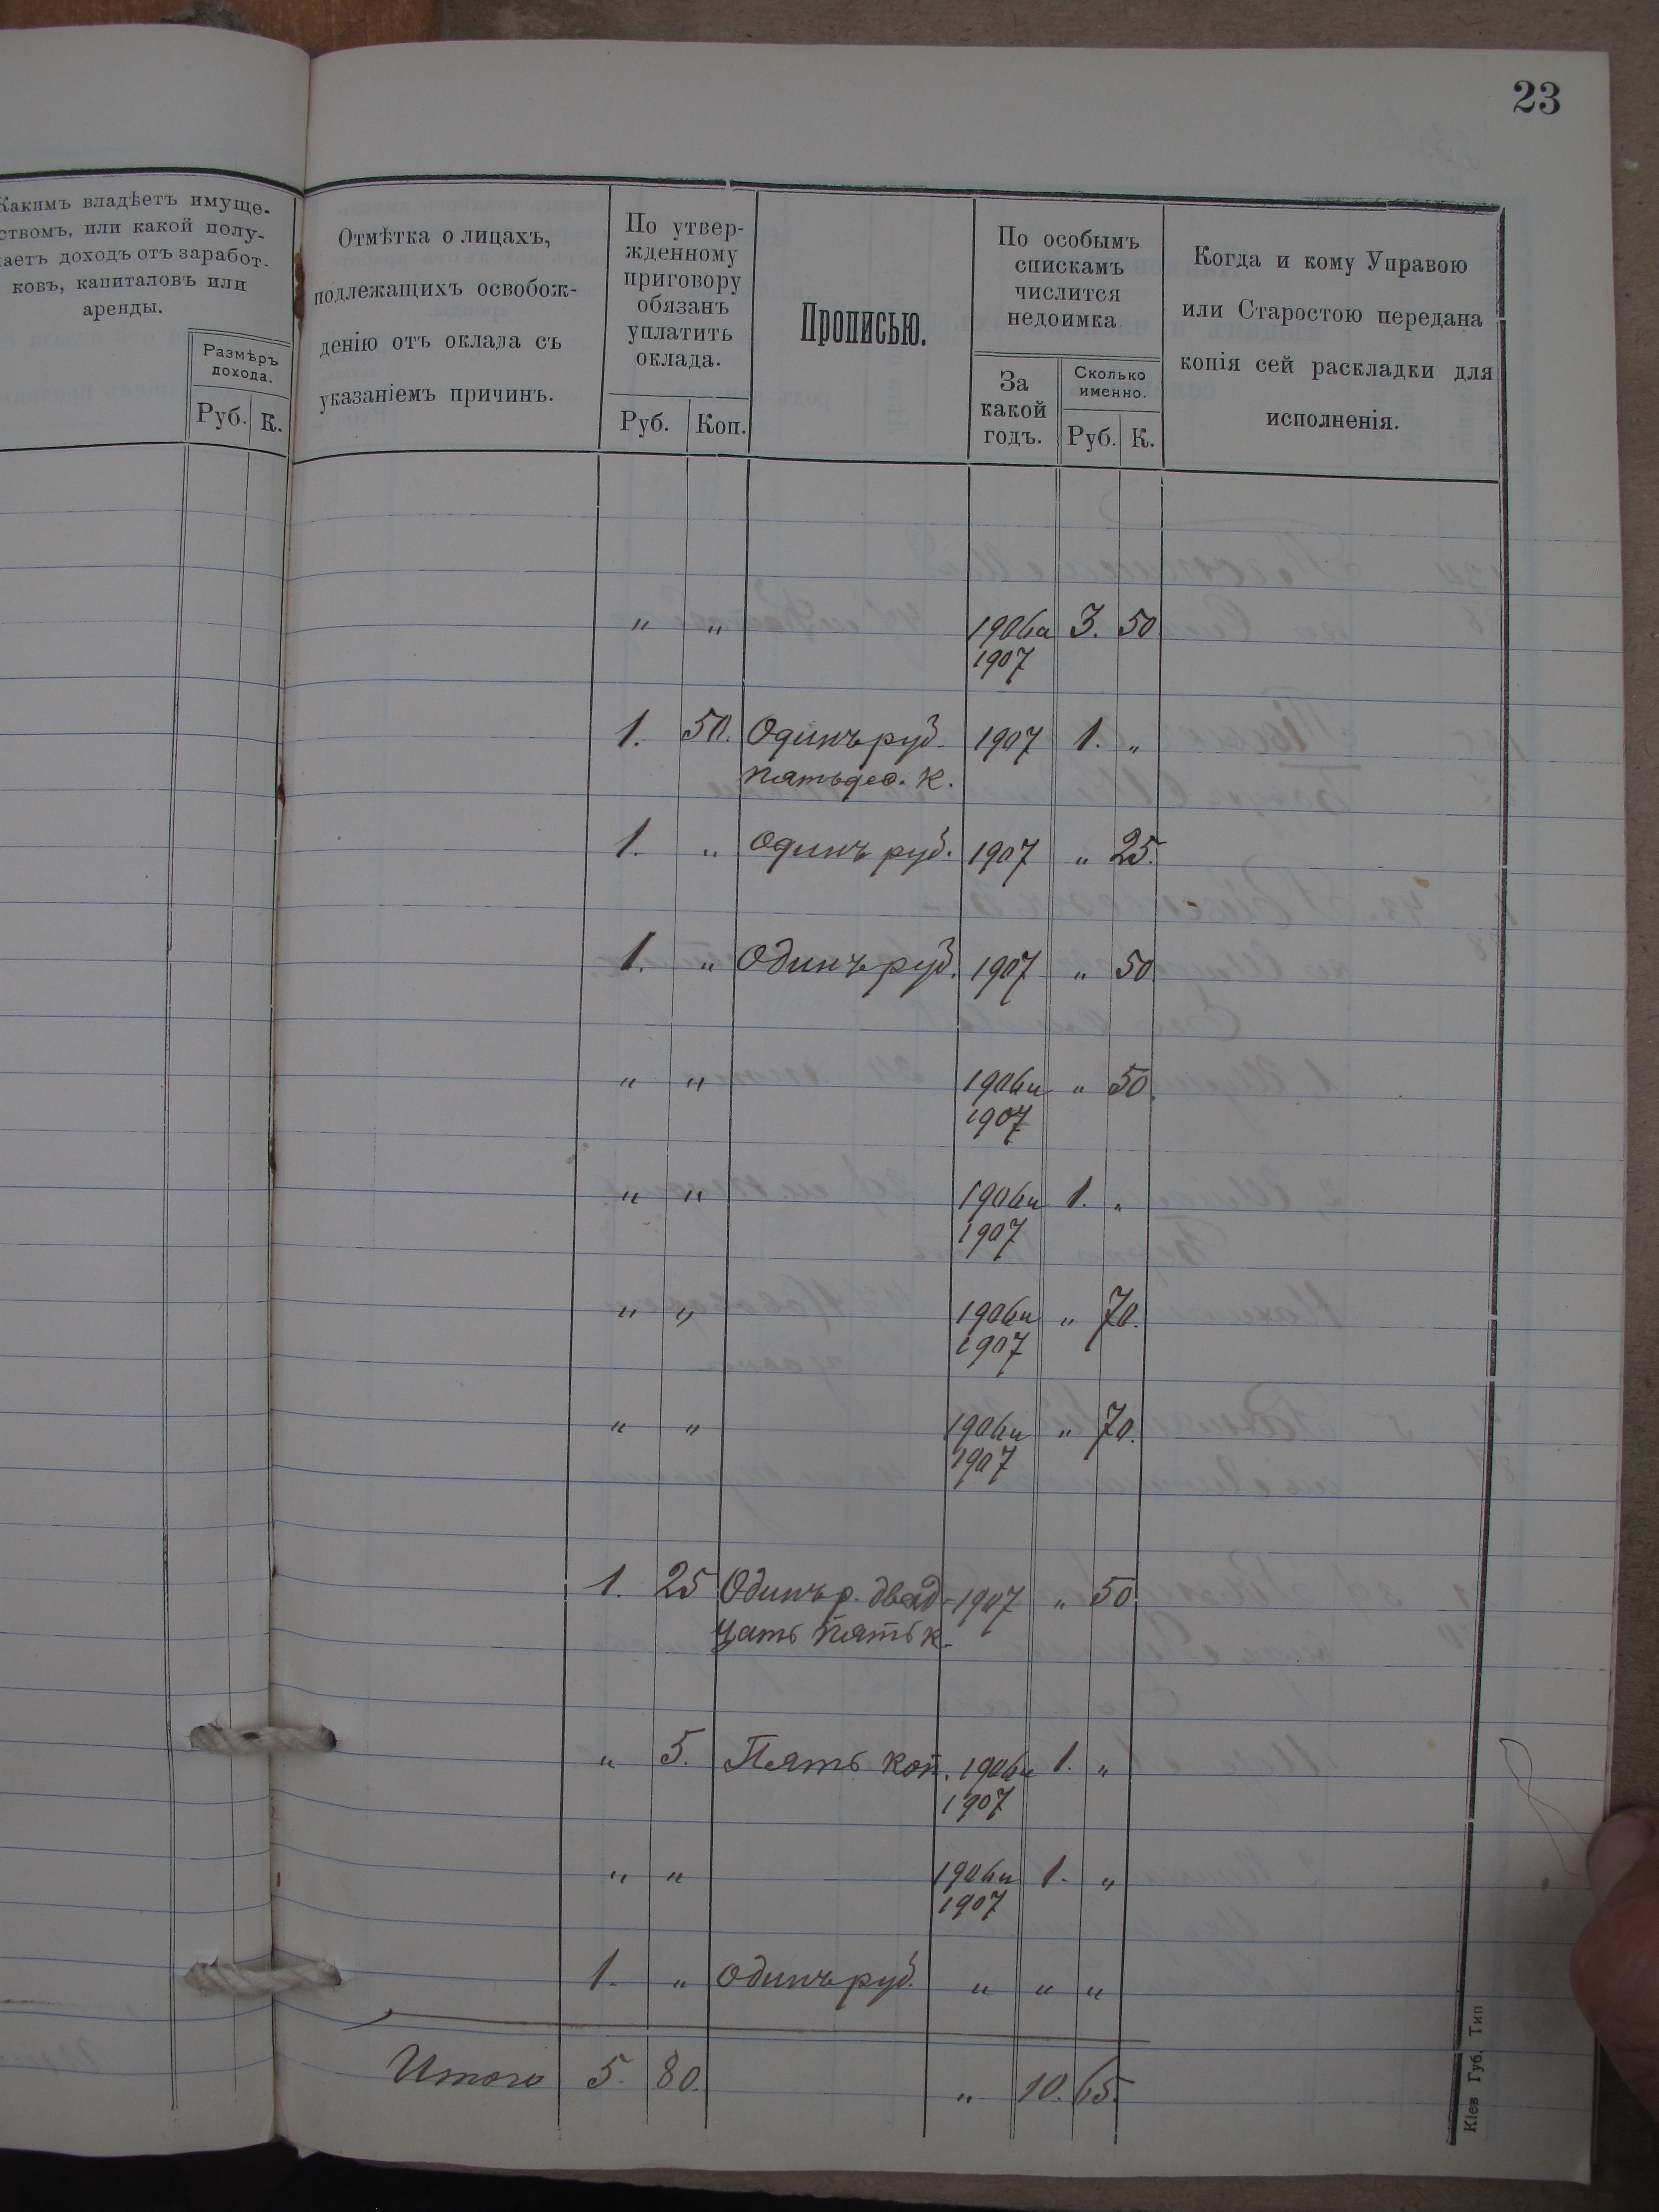 23
Какимъ владѣетъ имуще-
ствомъ, или какой полу-
чаетъ доходъ отъ заработ-
ковъ, капиталовъ или
аренды.
Размѣръ
дохода.
Руб. К.
Отмѣтка о лицахъ,
подлежащихъ освобож-
денію отъ оклада съ
указаніемъ причинъ.
По утвер-
жденному
приговору
обязанъ
уплатить
оклада.
Руб. Коп.
Прописью.
По особымъ
спискамъ
числится
недоимка
За
какой
годъ.
Сколько
именно.
Руб. К.
Когда и кому Управою
или Старостою передана
копія сей раскладки для
исполненія.
" " 1906и 3. 50
1907
1. 50. Одинъ руб. 1907 1. "
пятьдес. к.
1. " Одинъ руб. 1907 " 25.
1. " Одинъ руб. 1907 " 50.
" " 1906и " 50.
1907
" " 1906и 1. "
1907
" " 1906и " 70.
1907
" " 1906и " 70.
1907
1. 25 Одинъ р. двад- 1907 " 50
цать пять к.
" 5. Пять коп. 1906и 1. "
1907
" " 1906и 1. "
1907
1. " Одинъ руб. " " "
Итого 5. 80. " 10. 65.
Кіев Губ. Тип